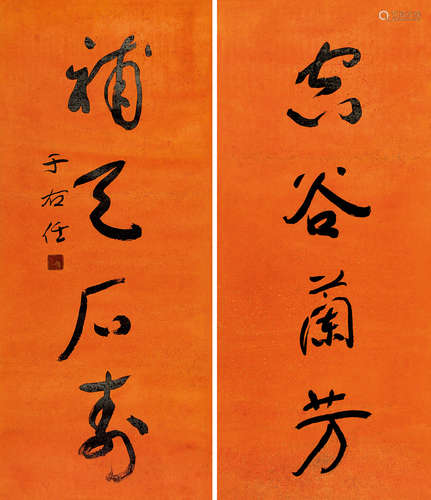 空谷蘭芳
補天石壽
于右任